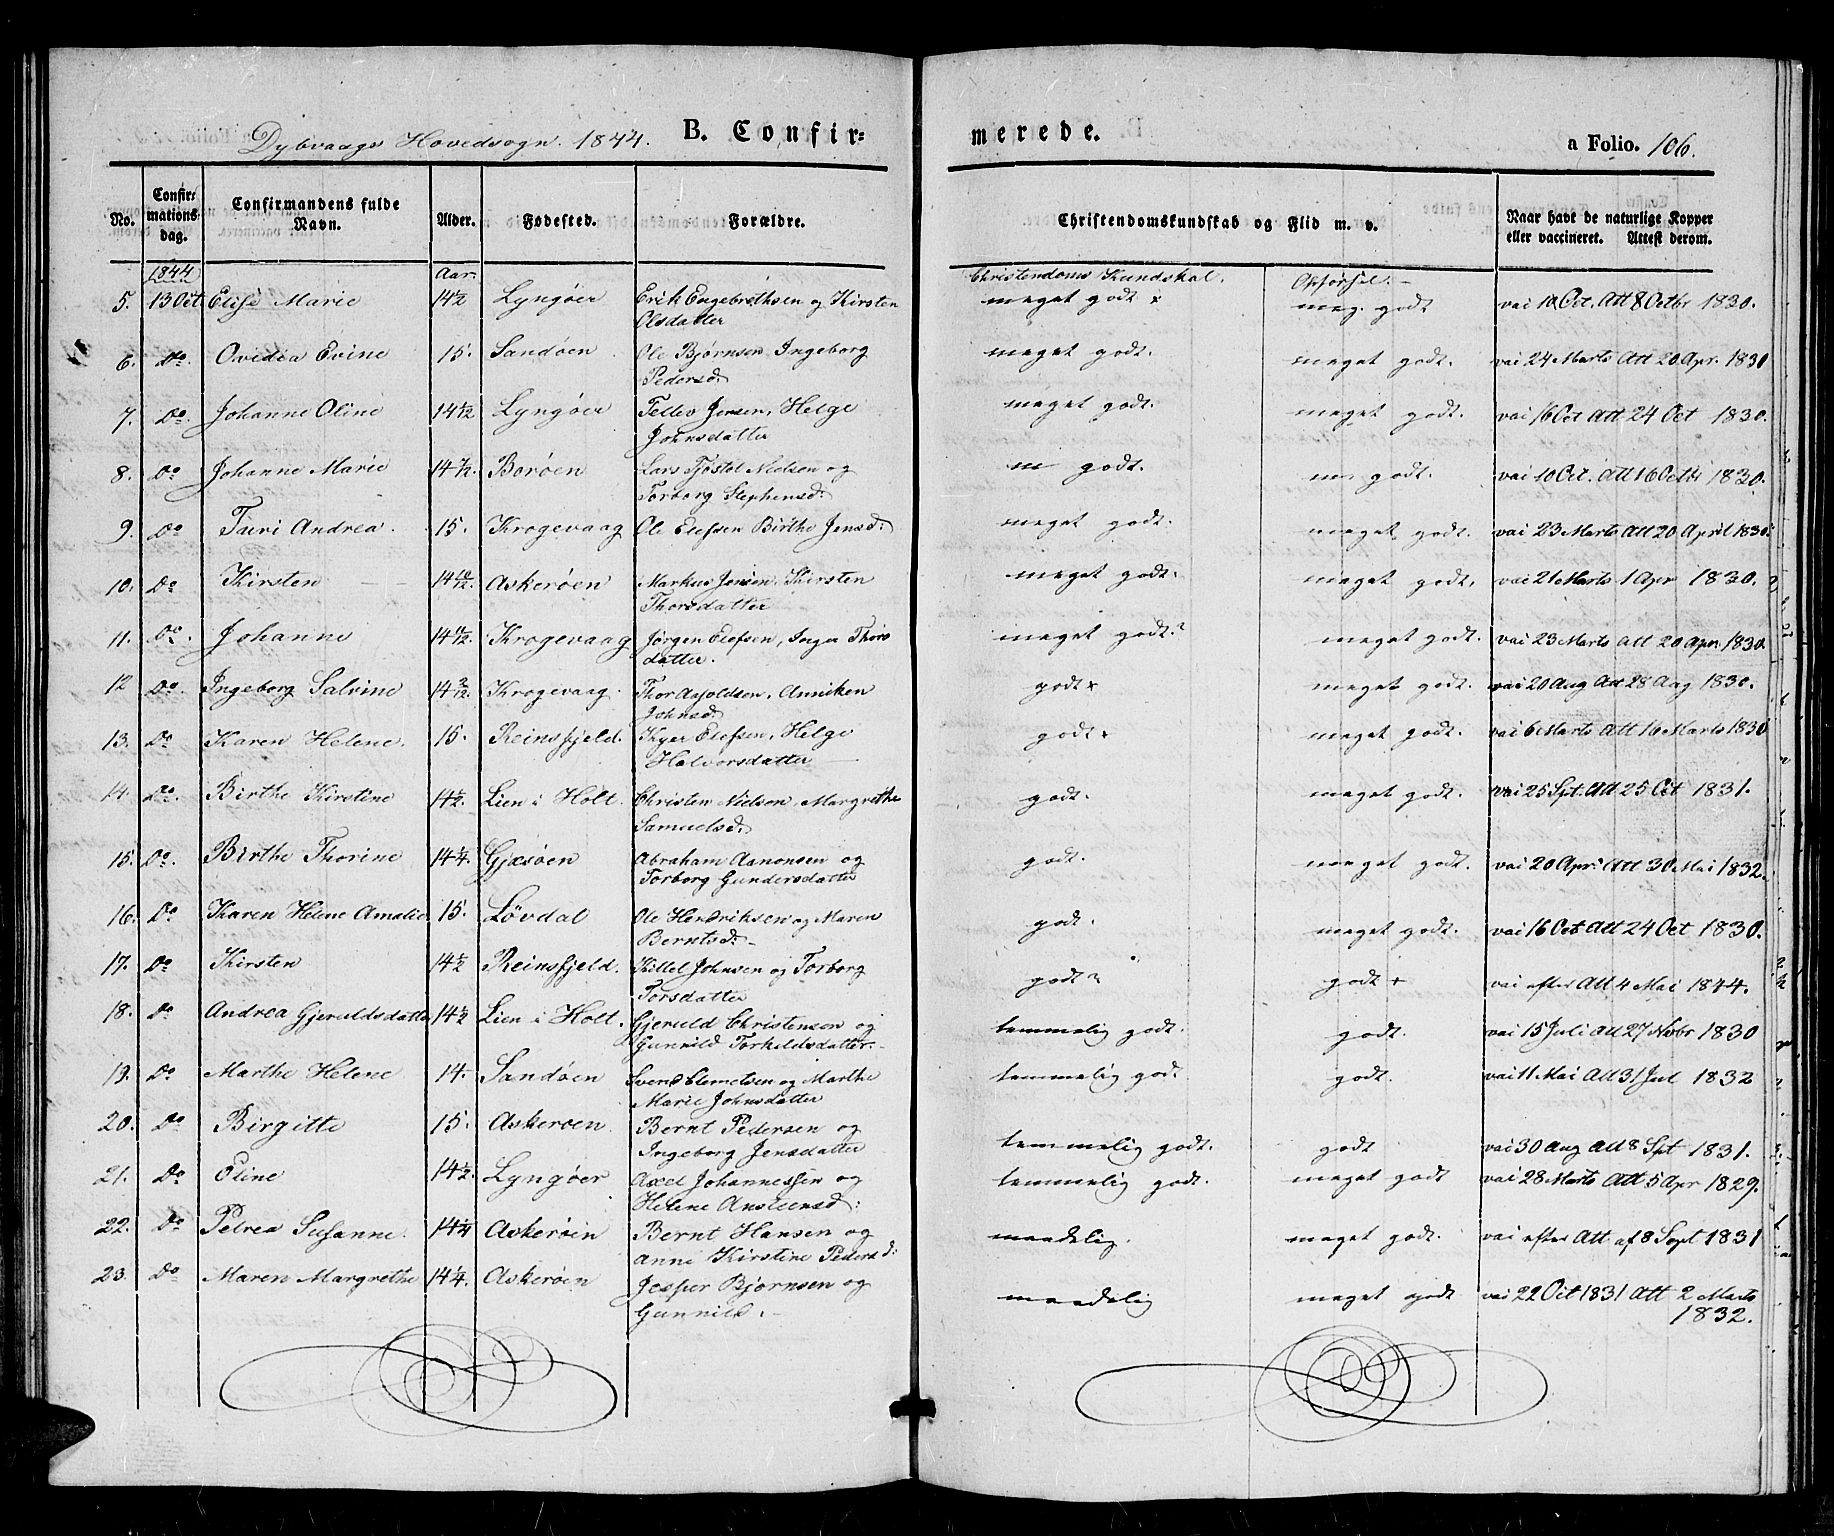 Dybvaags Hovedsogn. 1844. B. Confir=
merede. a Folio. 106.
No. Confir=mations=dag. Confirmandens fulde Navn. Alder. Fødested. Forældre. Christendomskundskab og Flid m. v. Naar havt de naturlige Kopper eller vaccineret. Attest derom.
1844 Aar. Christendoms Kundskab. Opførsel.
5. 13 Oct. Elise Marie 14½ Lyngöer Erik Engebrethsen og Kirsten meget godt x meg. godt vai 10 Oct. Att 8 Octbr 1830.
Olsdatter
6. Do. Ovidia Evine 15. Sandöen Ole Björnsen, Ingeborg meget godt. meget godt. vai 24 Marts Att 20 Apr. 1830
Pedersd:
7. Do. Johanne Oline 14 Lyngöer Tellev Jensen, Helge meget godt. meget godt. vai 16 Oct Att 24 Oct 1830.
Johnsdatter
8. Do Johanne Marie 14 Boröen Lars Tjöstel Nielsen og m godt. m godt. vai 10 Oct. Att 16 Octbr 1830.
Torborg Stephensd:
9. Do Turi Andrea. 15. Krogevaag Ole Elefsen Birthe Jensd: meget godt. meget godt. vai 23 Marts Att 20 April 1830.
10. Do Kirsten 14 10/12. Askeröen Markus Jensen, Kirsten meget godt. meget godt. vai 21 Marts 1 Apr 1830.
Thorsdatter
11. Do. Johanne 14 Krogevaag Jörgen Elefsen, Inga Thors meget godt. meget godt. vai 23 Marts Att 20 Apr. 1830.
datter.
12 Do. Ingeborg Salvine 14 Krogevaag. Thor Asoldsen, Anniken godt x meget godt. vai 20 Aug Att 28 Aug 1830.
Johnsd:
13. Do Karen Helene. 15. Reinsfjeld. Kyer Elefsen, Helge godt x meget godt. vai 6 Marts Att 16 Marts 1830
Halvorsdatter
14. Do. Birthe Kirstine 14½. Lien i Holt. Christen Nielsen, Margrethe godt. meget godt. vai 25 Spt. Att 25 Oct 1831.
Samuelsd:
15. Do. Birthe Thorine 14¼. Gjæsöen Abraham Aanonsen og godt. meget godt. vai 20 Apr. Att 30 Mai 1832.
Torborg Gundersdatter
16. Do Karen Helene Amalie 15. Lövdal Ole Hendriksen og Maren godt. meget godt. vai 16 Oct Att 24 Oct 1830.
Berntsd:
17. Do Kirsten 14½ Reinsfjeld. Kittel Johnsen og Torborg godt godt + vai efter Att 4 Mai 1844.
Torsdatter
18. Do Andrea Gjeruldsdatter 14½ Lien i Holt. Gjeruld Christenson og temmelig godt. godt. vai 15 Juli Att 27 Novbr 1830
Gunnild Torkildsdatter.
19. Do Marthe Helene 14. Sandöen Svend Clemetsen og Marthe temmelig godt. godt. vai 11 Mai Att 31 Jul 1832
Marie Johnsdatter
20. Do Birgitte 15. Askeröen. Bernt Pedersen og temmelig godt. godt vai 30 Aug Att 8 Spt 1831.
Ingeborg Jensdatter
21. Do Eline 14½. Lyngöer Axel Johannessen og temmelig godt. meget godt vai 28 Marts Att 5 Apr 1829.
Helene Anstensd:
22. Do Petrea Susanne. 14¼ Askeröen Bernt Hansen og maadelig. meget godt. vai efter Att af 8 Sept 1831
Anne Kirstine Pedersd:
23. Do Maren Margrethe 14¼. Askeröen Jesper Björnsen og maadelig meget godt vai 22 Oct 1831 Att 2 Marts
Gunnild. 1832.